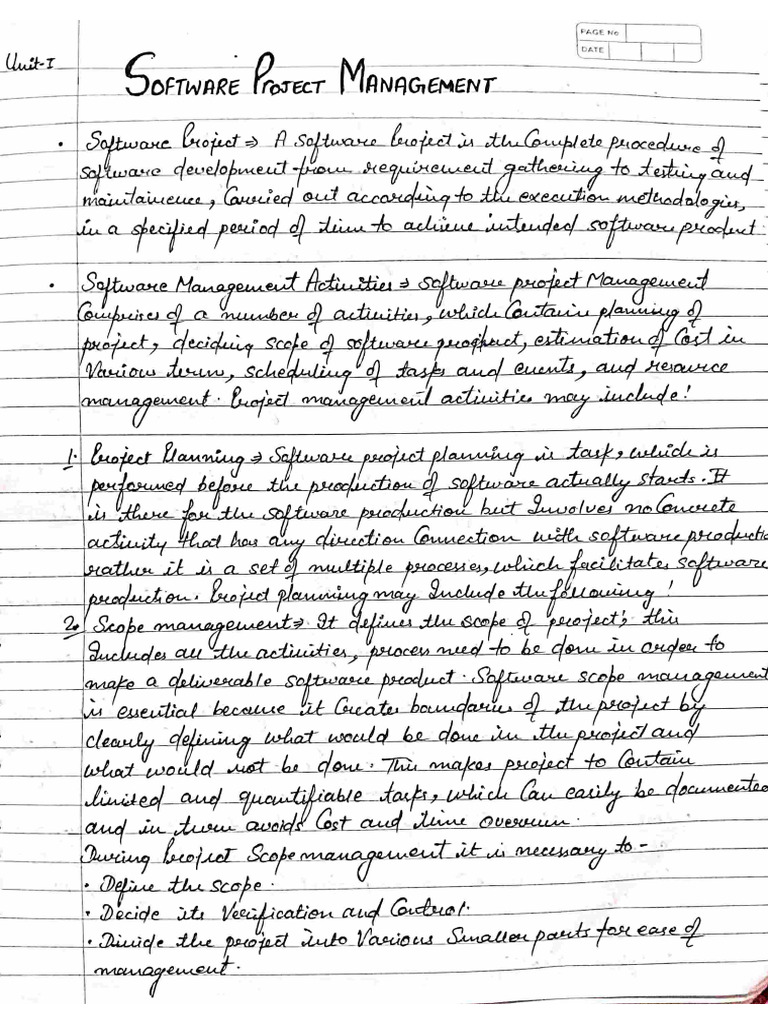 PAGE No
DATE
Unit-I
SOFTWARE PROJECT MANAGEMENT
• Software Project ⇒ A software Project is the Complete procedure of
software development from requirement gathering to testing and
maintainence, Carried out according to the execution methodologies,
in a specified period of time to achieve intended software product.
• Software Management Activities ⇒ software project Management
Comprises of a number of activities, which Contain planning of
project, deciding scope of software product, estimation of Cost in
Various term, scheduling of tasks and events, and resource
management. Project management activities may include!
1. Project Planning ⇒ Software project planning is task, which is
performed before the production of software actually starts. It
is there for the software production but Involves no Concrete
activity that has any direction Connection with software productio
rather it is a set of multiple processes, which facilitates software
production. Project planning may Include the following!
2. Scope management ⇒ It defines the scope of project; this
Includes all the activities, process need to be done in order to
make a deliverable software product. Software scope management
is essential because it Creates boundaries of the project by
clearly defining what would be done in the project and
what would not be done. This makes project to Contain
limited and quantifiable tasks, which Can easily be documented
and in turn avoids Cost and time overrun.
During Project Scope management it is necessary to -
• Define the scope.
• Decide its Verification and Control.
• Divide the project into Various Smaller parts for ease of
management.